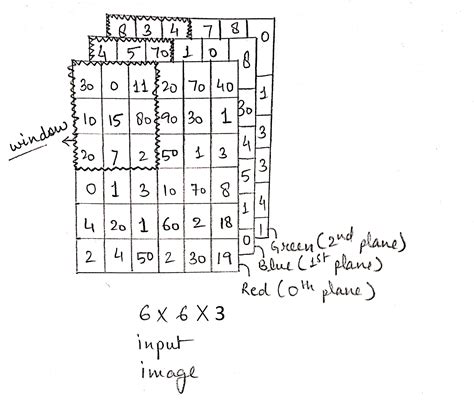 8 3 4 7 8 0
4 5 70 1 0 8
30 0 11 20 70 40
1
10 15 80 90 30 1 30 3
window
20 7 2 50 1 3 4 3
0 1 3 10 70 8 5 4
4 20 1 60 2 18 1 1
Green (2nd plane)
2 4 50 2 30 19 0
Blue (1st plane)
Red (0th plane)
6 x 6 x 3
input
image